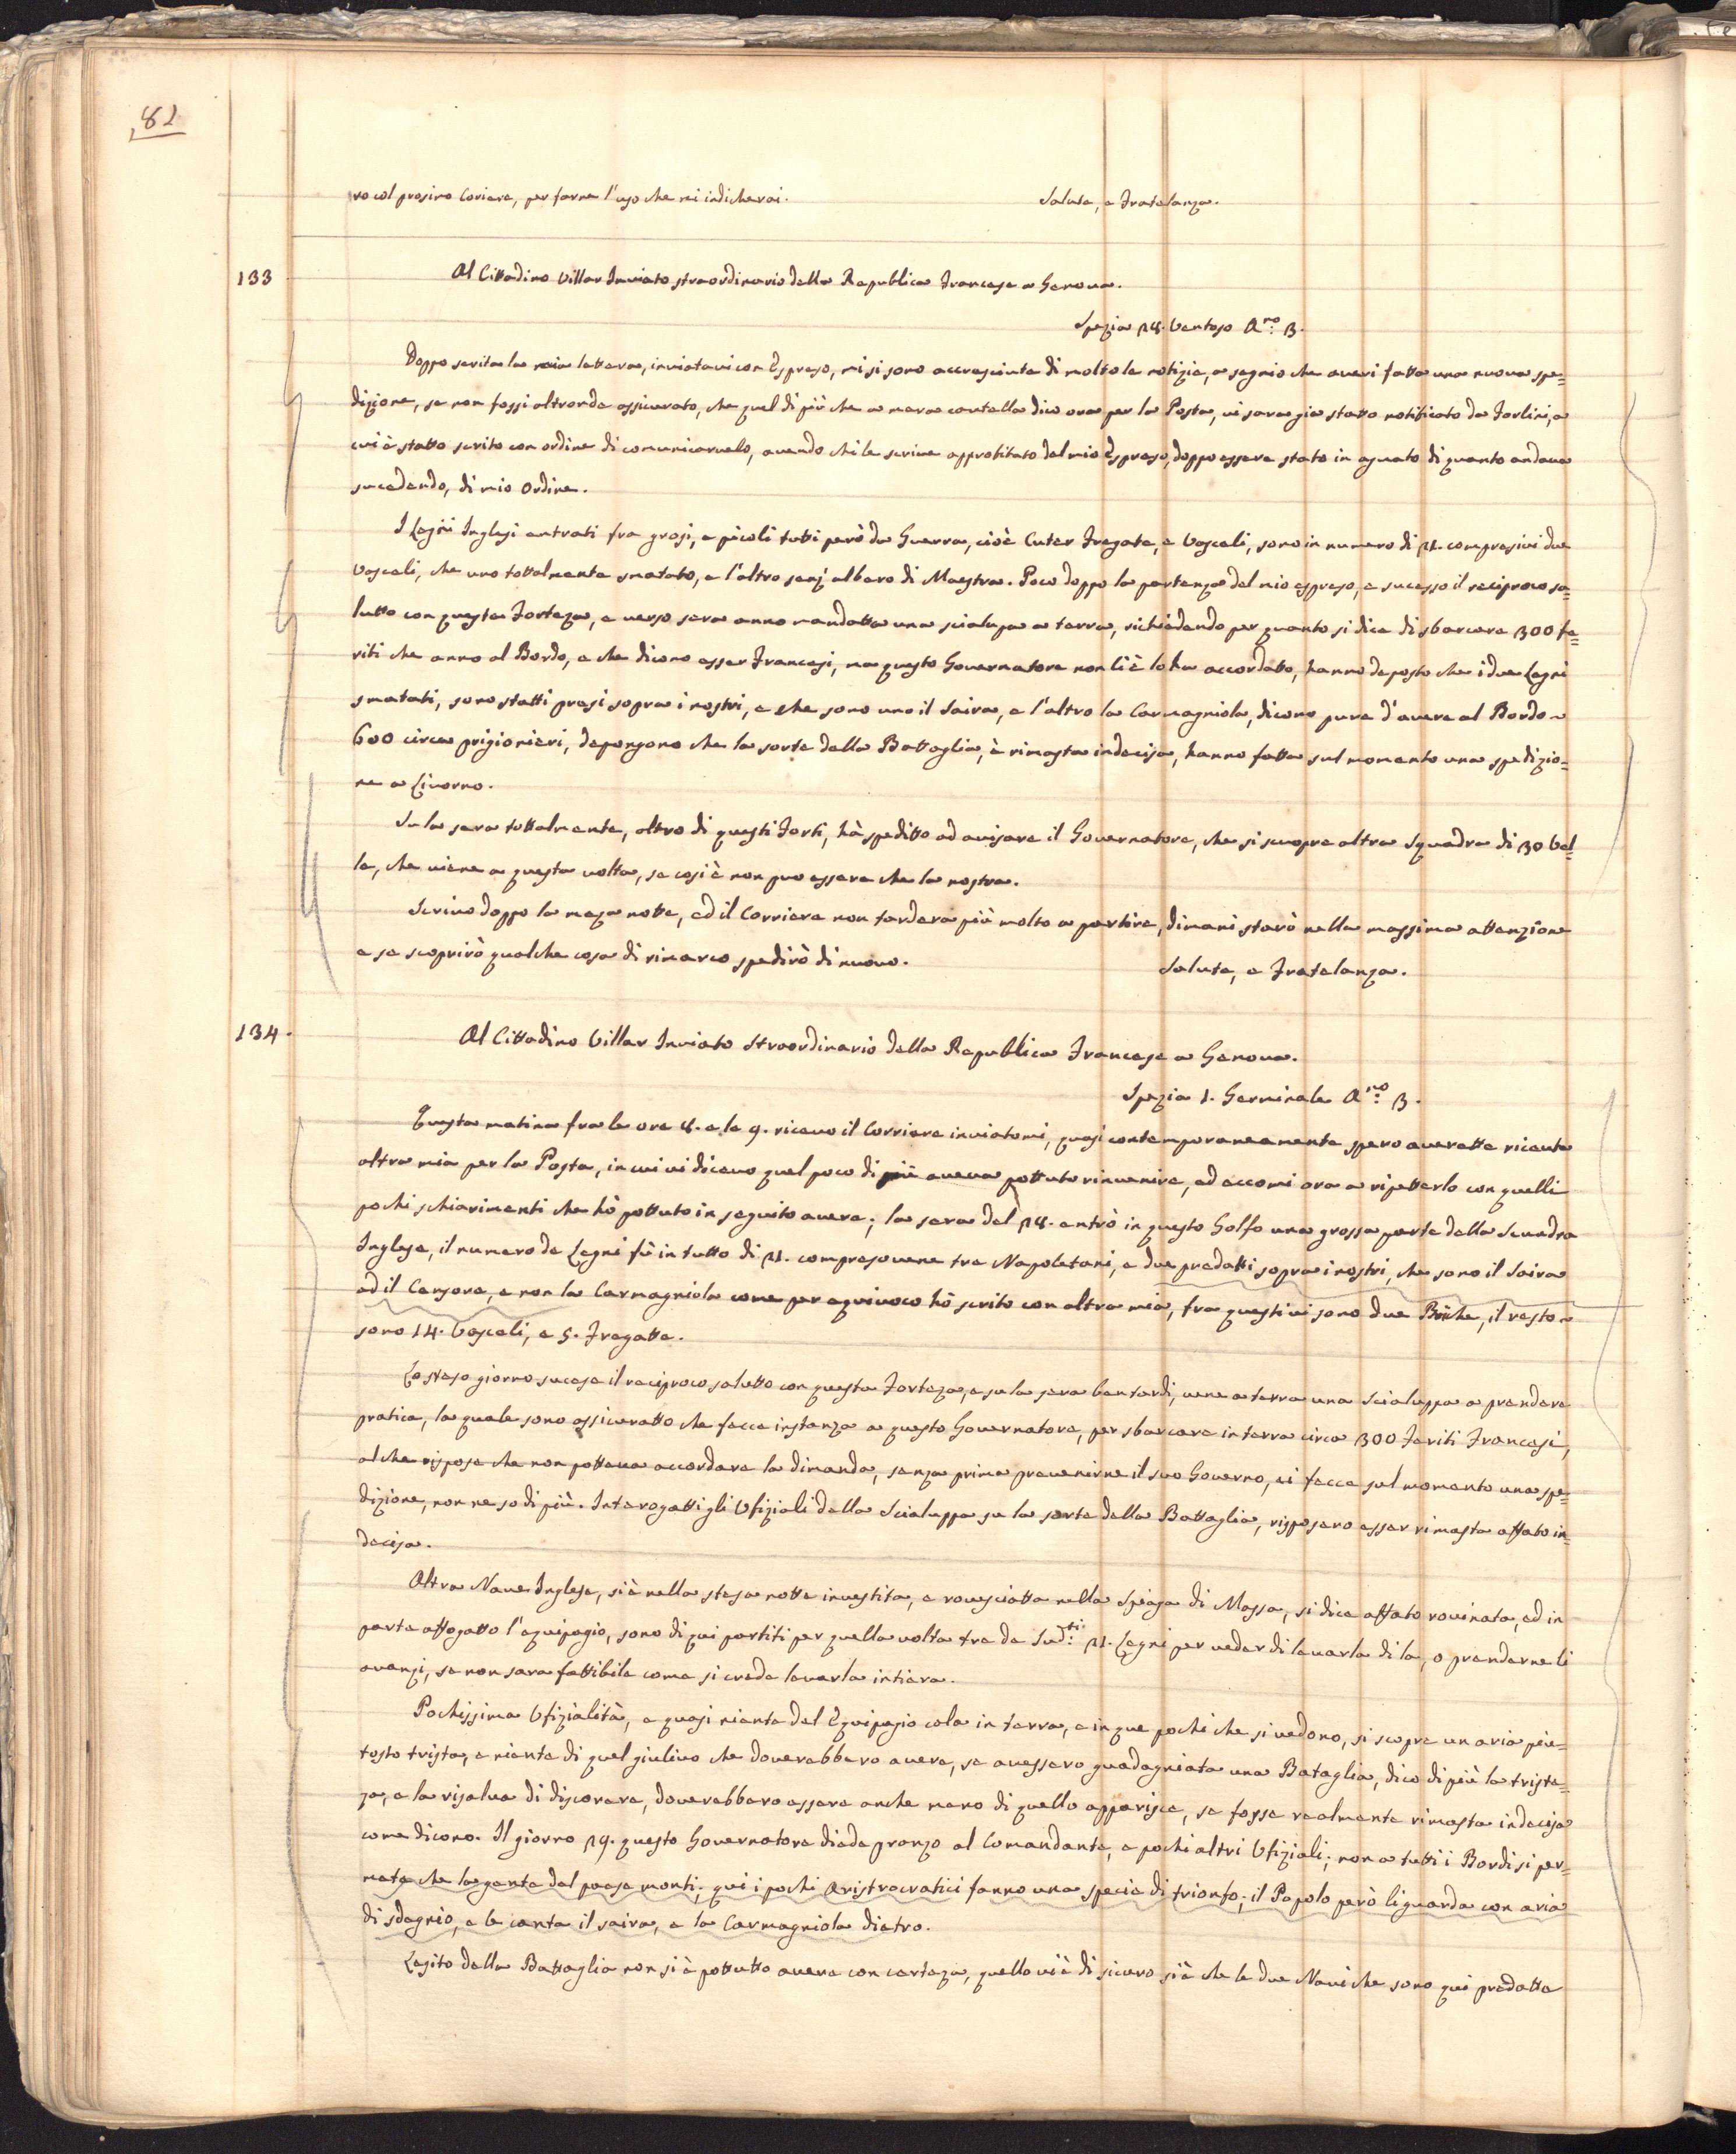 82
ro col prosimo Coriere, per farne l'uso che mi indicherai. Salute, e Fratelanza.
133 Al Cittadino Villar Inviato straordinario della Republica Francese a Genova.
Spezia 28. Ventoso A.no 3.
Doppo scrita la mia lettera, inviatavi con Espreso, mi si sono accresciute di molto le notizie, a segnio che averi fatta una nuova spe=
dizione, se non fossi altronde assicurato, che quel di più che a mera cautella dico ora per la Posta, vi sara gia statto notificato da Torlini, a
cui è statto scrito con ordine di comunicarvelo, avendo chi le scrive approfitato del mio Espreso, doppo essere stato in aguato di quanto andava
sucedendo, di mio ordine.
I Legni Inglesi entrati fra grosi, e picoli tutti però da Guerra, cioè Cuter Fregate, e Vasceli, sono in numero di 21. compresivi due
Vasceli, che uno tottalmente smatato, e l'altro senz'albero di Maestra. Poco doppo la partenza del mio espreso, e sucesso il reciproco sa=
lutto con questa Forteza, e verso sera anno mandatta una scialupa a terra, richiedendo per quanto si dice di sbarcare 300 fe=
riti che anno al Bordo, e che dicono esser Francesi, ma questo Governatore non li è lo ha accordatto, hanno deposto che i due Legni
smatati, sono statti presi sopra i nostri, e che sono uno il Saira, e l'altro la Carmagniola, dicono pure d'avere al Bordo
600 circa prigionieri, depongono che la sorte della Battaglia, è rimasta indecisa, hanno fatta sul momento una spedizio=
ne a Livorno.
Su la sera tottalmente, altro di questi Forti, hà speditto ad avisare il Governatore, che si scuopre altra Squadra di 30 Vel=
le, che viene a questa volta, se cosi è non puo essere che la nostra.
Scrivo doppo la meza notte, ed il Corriere non tardera più molto a partire, dimani starò nella massima attenzione
e se scoprirò qualche cosa di rimarco spedirò di nuovo. Salute, e Fratelanza.
134. Al Cittadino Villar Inviato Straordinario della Republica Francese a Genova.
Spezia 1. Germinale A.no 3.
Questa matina fra le ore 8. e le 9. ricevo il Corriere inviatomi, quasi contemporaneamente spero averette riceuta
altra mia per la Posta, in cui vi dicevo quel poco di più aveva pottuto rinvenire, ed eccomi ora a ripetterlo con quelli
pochi schiarimenti che hò pottuto in seguito avere; la sera del 28. entrò in questo Golfo una grossa parte della Scuadra
Inglese, il numero de Legni fù in tutto di 21. compresovene tre Napoletani, e due predatti sopra i nostri, che sono il Saira
ed il Censore, e non la Carmagniola come per equivoco hò scrito con altra mia, fra questi vi sono due Briche, il resto
sono 14. Vasceli, e 5. Fregatte.
Lo steso giorno sucese il reciproco salutto con questa Forteza, e su la sera ben tardi, vene a terra una Scialuppa a prendere
pratica, la quale sono assicuratto che fecce instanza a questo Governatore, per sbarcare in terra circa 300 Feriti Francesi,
al che rispose che non potteva accordare la dimanda, senza prima prevenirne il suo Governo, vi fecce sul momento una spe=
dizione, non ne so di più. Interogatti gli Ufiziali della Scialuppa su la sorte della Battaglia, risposero esser rimasta affato in=
decisa.
Altra Nave Inglese, si è nella stesa notte investita, e rovesciatta nella Spiaga di Massa, si dice affato rovinata, ed in
parte affogatto l'equipagio, sono di qui partiti per quella volta tre de Sud.ti 21. Legni per veder di levarla di la, o prenderne li
avanzi, se non sara fattibile come si crede levarla intiera.
Pochissima Ufizialità, e quasi niente del Equipagio cola in terra, e in que pochi che si vedono, si scopre un aria piu=
tosto trista, e niente di quel giulivo che doverebbero avere, se avessero guadagniata una Bataglia, dico di più la triste=
za, e la risalva di discorere, doverebbero essere anche meno di quello apparisce, se fosse realmente rimasta indecisa
come dicono. Il giorno 29. questo Governatore diede pranzo al Comandante, e pochi altri Ufiziali; non a tutti i Bordi si per=
mete che la gente del paese monti; qui i pochi Aristrocratici fanno una specie di trionfo; il Popolo però li guarda con aria
di sdegnio, e le canta il saira, e la Carmagniola dietro.
Lesito della Battaglia non si è pottutto avere con certeza, quello vi è di sicuro si è che le due Navi che sono qui predatte